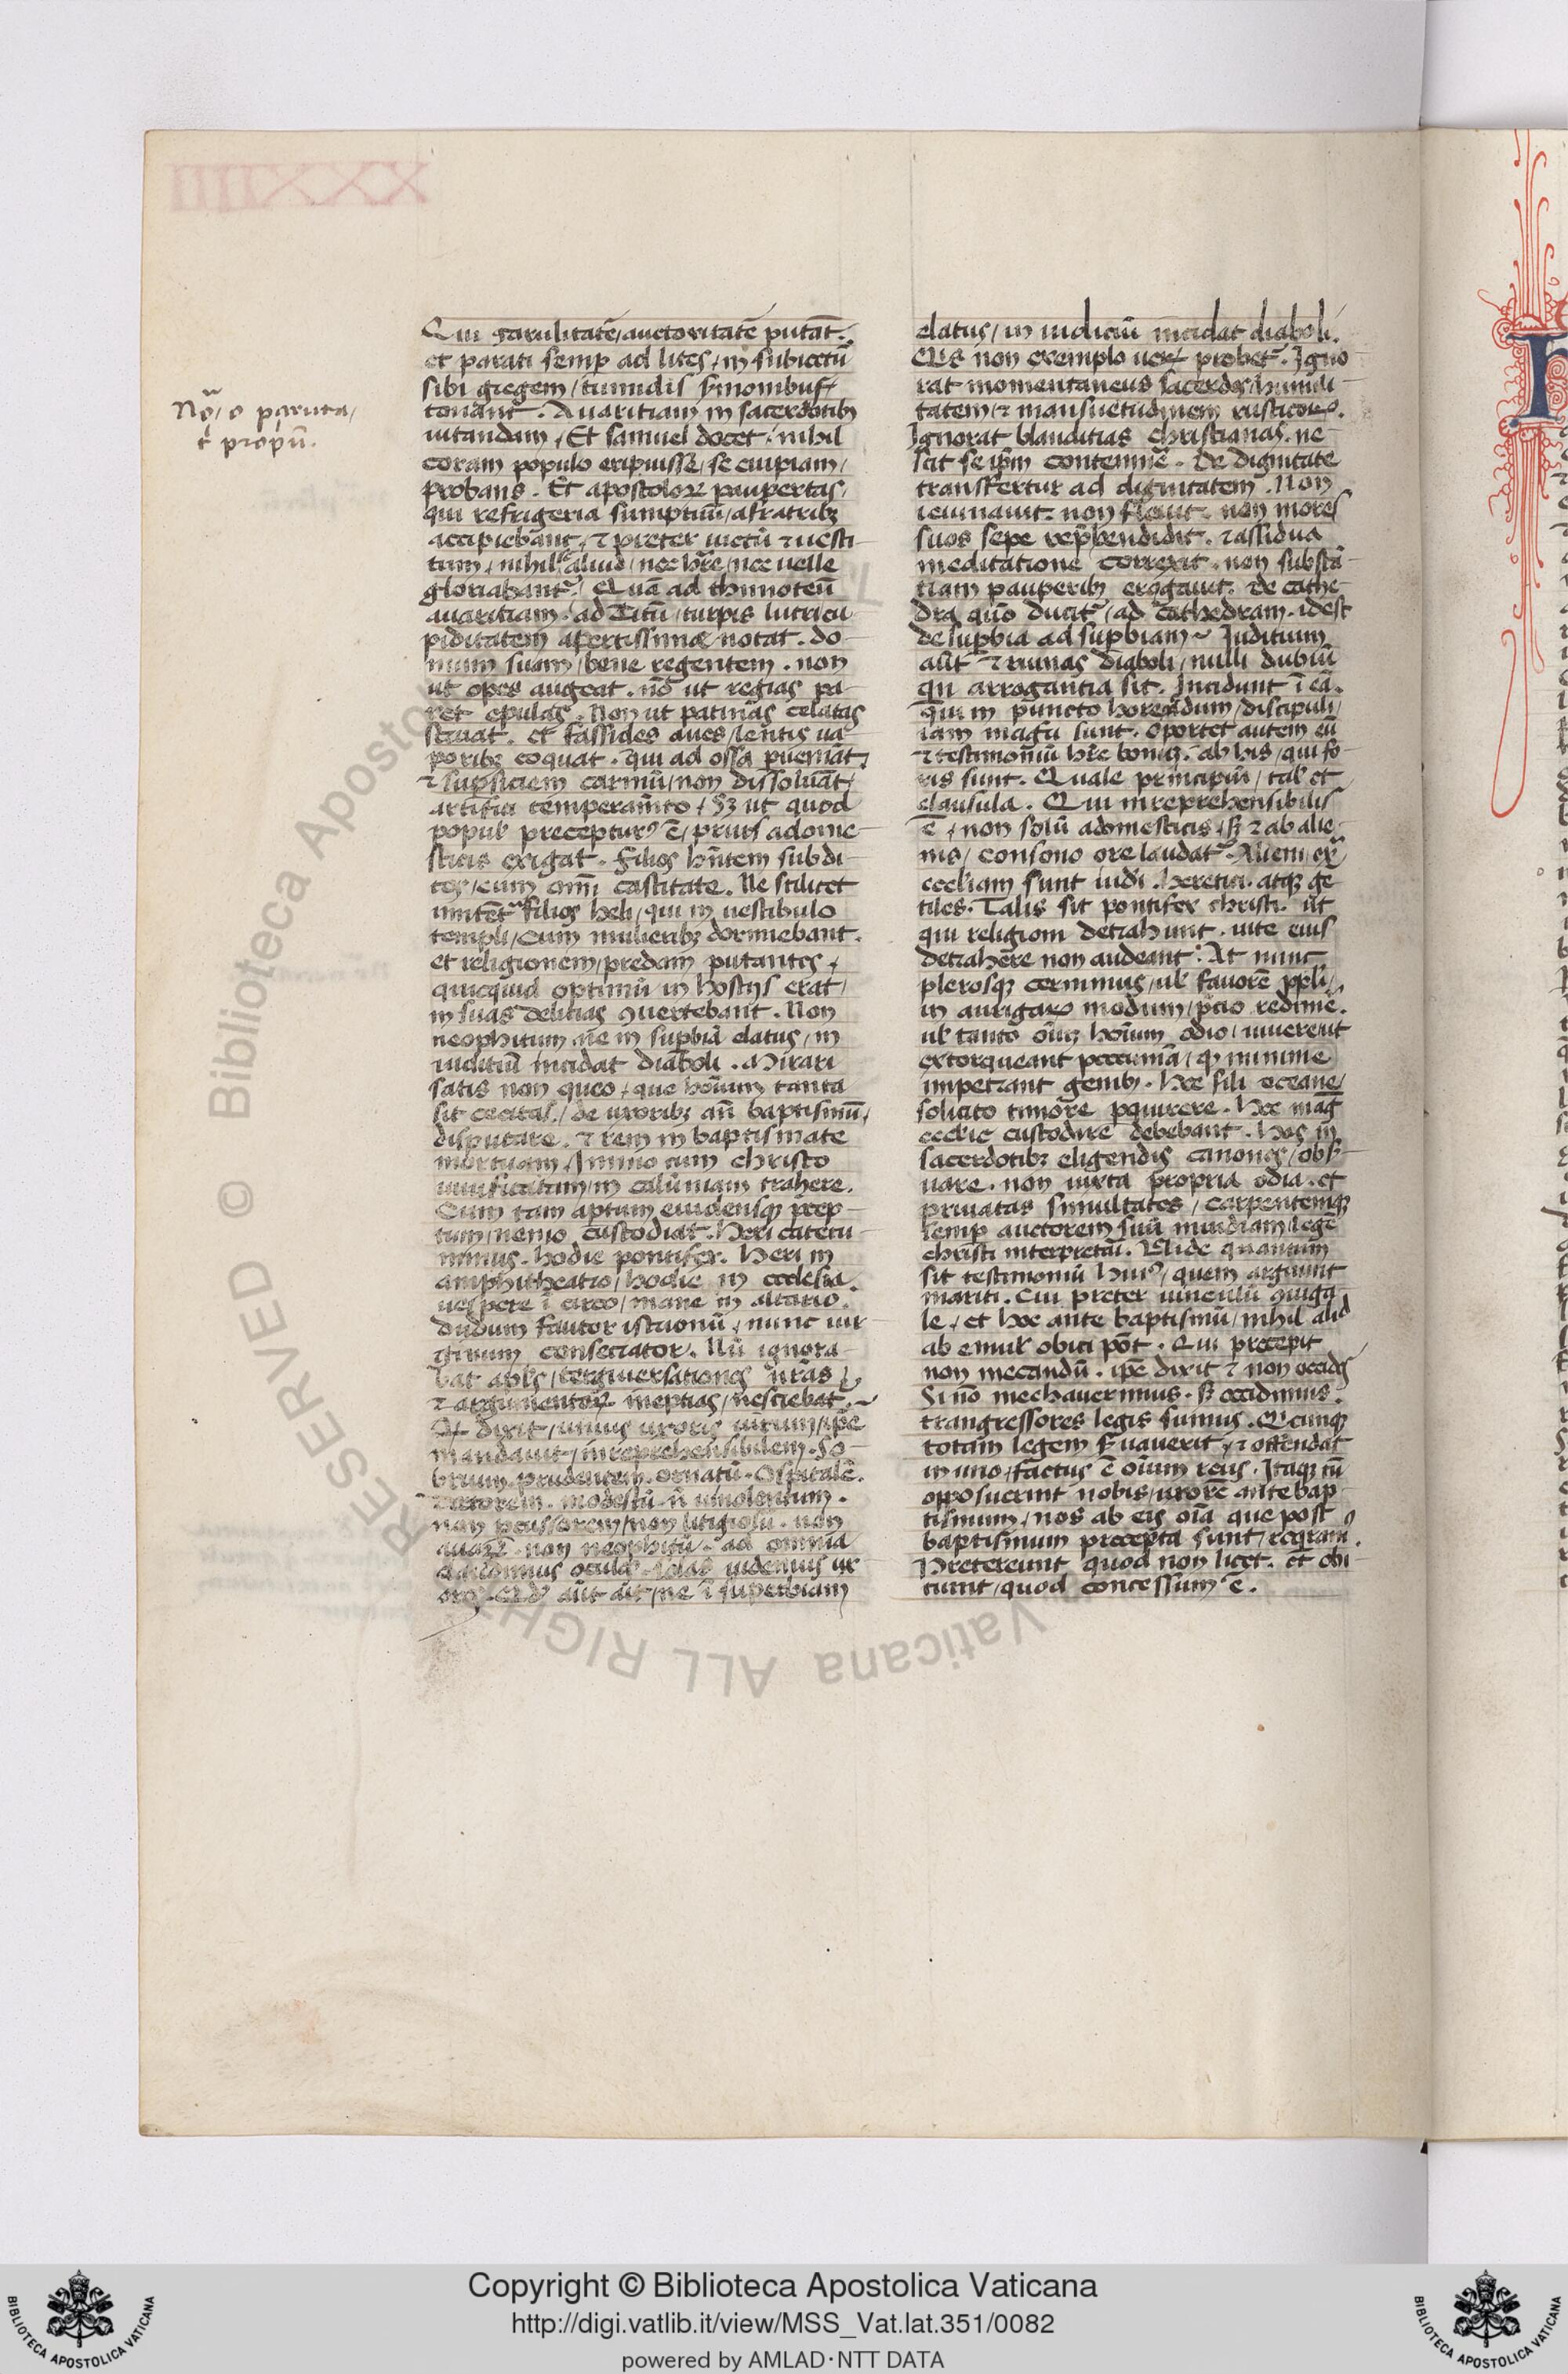 XXXIIII
No͂/ o paruta/
t̕ propū.
Qui garulitatē/auctoritatē putāt.
et parati semp ad lites/in subiectū
sibi gregem/tumidis s̕monibus/
tonant. Auaritiam in sacerdotib
uitandam/Et samuel docet. nihil
coram populo eripuisse/se cuipiam/
probans. Et apostoloꝝ paupertas/
qui refrigeria sumptuū/afratribꝫ
accipiebant/⁊ preter uictū ⁊uesti-
tum/nihil aliud/nec hr̄e/nec uelle
gloriabant̕. Quā ad thimoteū
auaritiam. ad Titū/turpis lucri cu
piditatem apertissime notat. do-
mum suam/bene regentem. non
ut opes augeat. nō ut regias pa-
ret epulas. Non ut patinas celatas
struat. et fassides aues/lentis ua
poribꝫ coquat. qui ad ossa pueniāt
⁊ supficiem carniū/non dissoluāt/
artifici temperam̄to/Sꝫ ut quod
popul̕ precepturꝰ ē/prius adome-
sticis exigat. Filios hn̄tem subdi-
tos/cum omī castitate. Ne scilicet
imitēt̕ filios heli/qui in uestibulo
templi/Cum mulieribꝫ dormiebant.
et religionem/predam putantes/
quicquid optimū in hostijs erat/
in suas delitias ꝯuertebant. Non
neophitum. ne in supbiā elatus/in
iuditiū incidat diaboli. Mirari
satis non queo/que hoīum tanta
sit cecitas/de uxoribꝫ an̄ baptismū/
disputare. ⁊ rem in baptismate
mortuam/Immo cum christo
uiuificatam/in calūniam trahere.
Cum tam aptum euidensqꝫ prep-
tum/nemo custodiat. Heri catecu-
minus. hodie pontifex. Heri in
amphitheatro/hodie in ecclesia.
uespere ī circo/mane in altario.
dudum fautor istrionū/nunc uir
ginum consecrator. Nū ignora-
bat apl̄s/tergiuersationes nr̄as
⁊ argumentoꝝ ineptias/nesciebat.
Qui dixit/unius uxoris uirum/ip̄e
mandauit/inreprehensibilem. So-
brium. prudentem. ornatū. Ospitalē.
doctorem. modestū. n̄ uinolentum.
non pcussorem/non litigiosū. non
auaꝝ. non neophitū. ad omnia
claudimus oculos. solas uidemus ux
ores. Qd̕ aūt ait/ne ī superbiam
elatus/in iudiciū incidat diaboli.
Quis non exemplo ueꝝ probet̕. Igno
rat momentaneus sacerdos/humili-
tatem/⁊ mansuetudinem rusticoꝝ.
Ignorat blanditias christianas. ne-
scit se ip̄m contemnē. De dignitate
transfertur ad dignitatem. Non
ieiunauit. non fleuit. non mores
suos sepe rep̄hendidit. ⁊assidua
meditatione correxit. non substā-
tiam pauperibꝫ erogauit. De cathe-
dra quō ducit̕/ad cathedram. idest
de supbia ad supbiam~ Iuditium
aūt ⁊ ruinas diaboli/nulli dubiū
qn̄ arrogantia sit. Incidunt ī eā.
qui in puncto horerūdum/discipuli/
iam magr̄i sunt. Oportet autem eū
⁊ testimoniū hr̄e bonūꝫ. ab his/qui fo-
ris sunt. Quale principiū/tal̕ et
clausula. Qui inreprehensibilis
ē/non solū adomesticis/sꝫ ⁊ ab alie-
nis/consono ore laudat̕. Alieni ex̄
eccl̄iam sunt iudi. heretici. atqꝫ ge
tiles. Talis sit pontifex christi. ut
qui religioni detrahunt. uite eius
detrahere non audeant. At nunc
plerosqꝫ cernimus/ul̕ fauorē ppl̄i/
in aurigaꝝ modum/p̄cio redimē.
ul̕ tanto oīuꝫ hoīum odio/uiuere/ut
extorqueant peccuniā/qꝫ minime
impetrant gemibꝫ. Hoc fili oceane/
solicito timore pquirere. Hoc mag̕
eccl̄ie custodire debebant. Hos in
sacerdotibꝫ eligendis canones/obs̕-
uare. non iuxta propria odia. et
priuatas simultates/carpentemqꝫ
semp auctorem suū inuidiam/lege
christi interpretāi. Uide quantum
sit testimoniū huiꝰ/quem arguunt
mariti. Cui preter uinculū ꝯiuga
le/et hoc ante baptismū/nihil aliꝺ
ab emul̕ obici pōt. Qui precepit
non mecandū. ip̄e dixit ⁊ non occides
Si nō mechauerimus. sꝫ occidimus.
trangressores legis sumus. Qcunqꝫ
totam legem s̕uauerit/⁊ offendat
in uno/factus ē oīum reus. Itaqꝫ cū
opposuerint nobis/uxorē ante bap-
tismum/nos ab eis oīa que post
baptismum precepta sunt/reqram̕.
Pretereunt quod non licet. et obi-
ciunt/quod concessum ē.
© Biblioteca Apostolica Vaticana ALL RIGHTS RESERVED
BIBLIOTECA APOSTOLICA VATICANA
Copyright © Biblioteca Apostolica Vaticana
http://digi.vatlib.it/view/MSS_Vat.lat.351/0082
powered by AMLAD·NTT DATA
BIBLIOTECA APOSTOLICA VATICANA